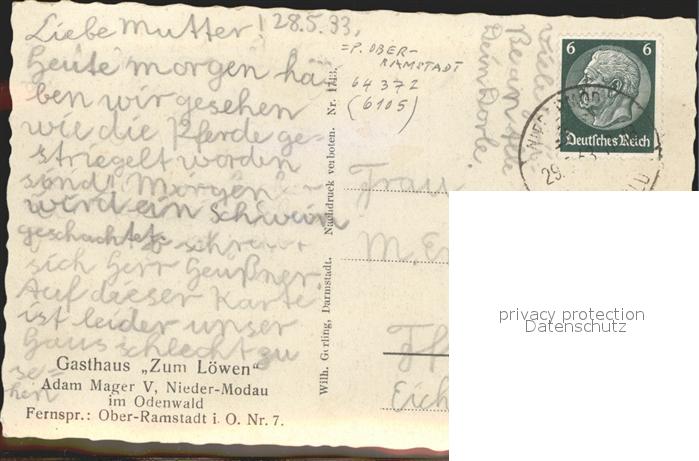 Liebe Mutter! 28.5.33,
heute morgen hä-
ben wir gesehen
wie die Pferde ge-
striegelt worden
sind! Morgen
wird ein Schwein
geschachtet
sich Herr Heußner
Auf dieser Karte
ist leider unser
Haus schlecht zu
se-
hen
Gasthaus „Zum Löwen"
Adam Mager V, Nieder-Modau
im Odenwald
Fernspr.: Ober-Ramstadt i. O. Nr. 7.
Wilh. Gerling, Darmstadt. Nachdruck verboten. Nr. 1783.
=P. OBER-
RAMSTADT
64372
(6105)
viele
an alle
Dein Dorle.
6 6
Deutsches Reich
29.
Frau
M.
Eich
privacy protection
Datenschutz